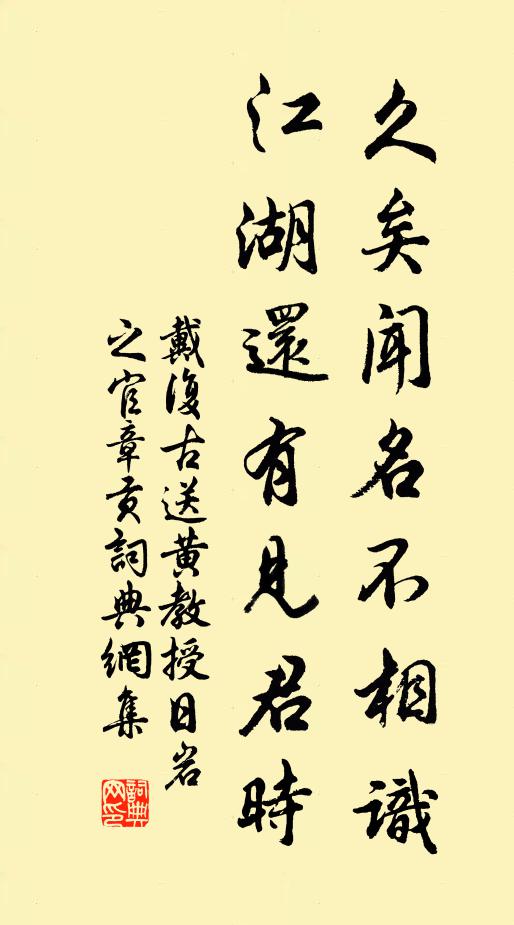 久矣聞名不相識
江湖還有見君時
戴復古送黃教授日岩
之官章貢詞典網集
詞典
网印